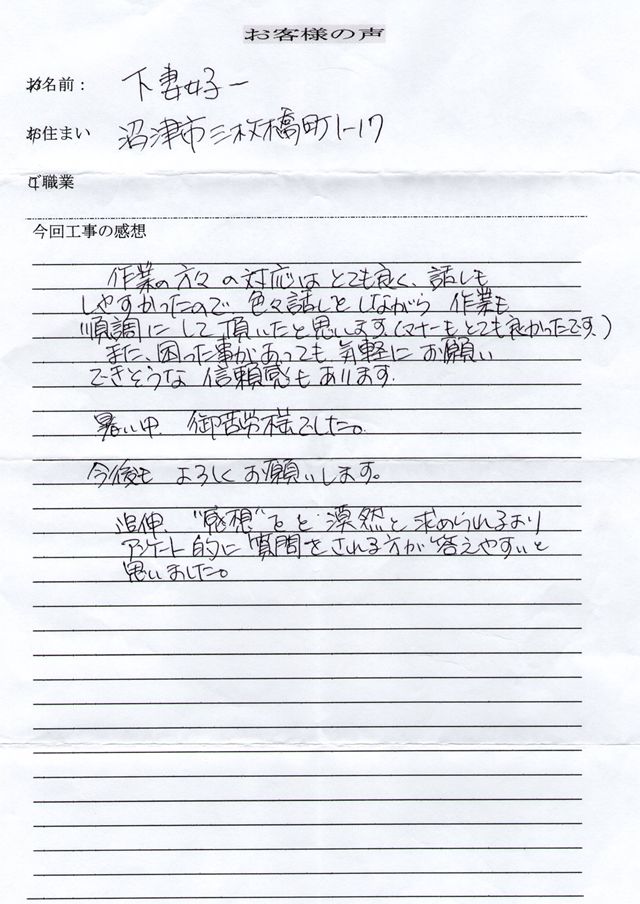 お客様の声
お名前： 下妻好一
お住まい 沼津市三枚橋町1-17
ご職業
今回工事の感想
作業の方々の対応はとても良く、話しも
しやすかったので色々話しをしながら作業も
順調にして頂いたと思います（マナーもとても良かったです。）
また、困った事があっても気軽にお願い
できそうな信頼感もあります。
暑い中、御苦労様でした。
今後もよろしくお願いします。
追伸、"感想"をと漠然と求められるより
アンケート的に質問をされる方が答えやすいと
思いました。